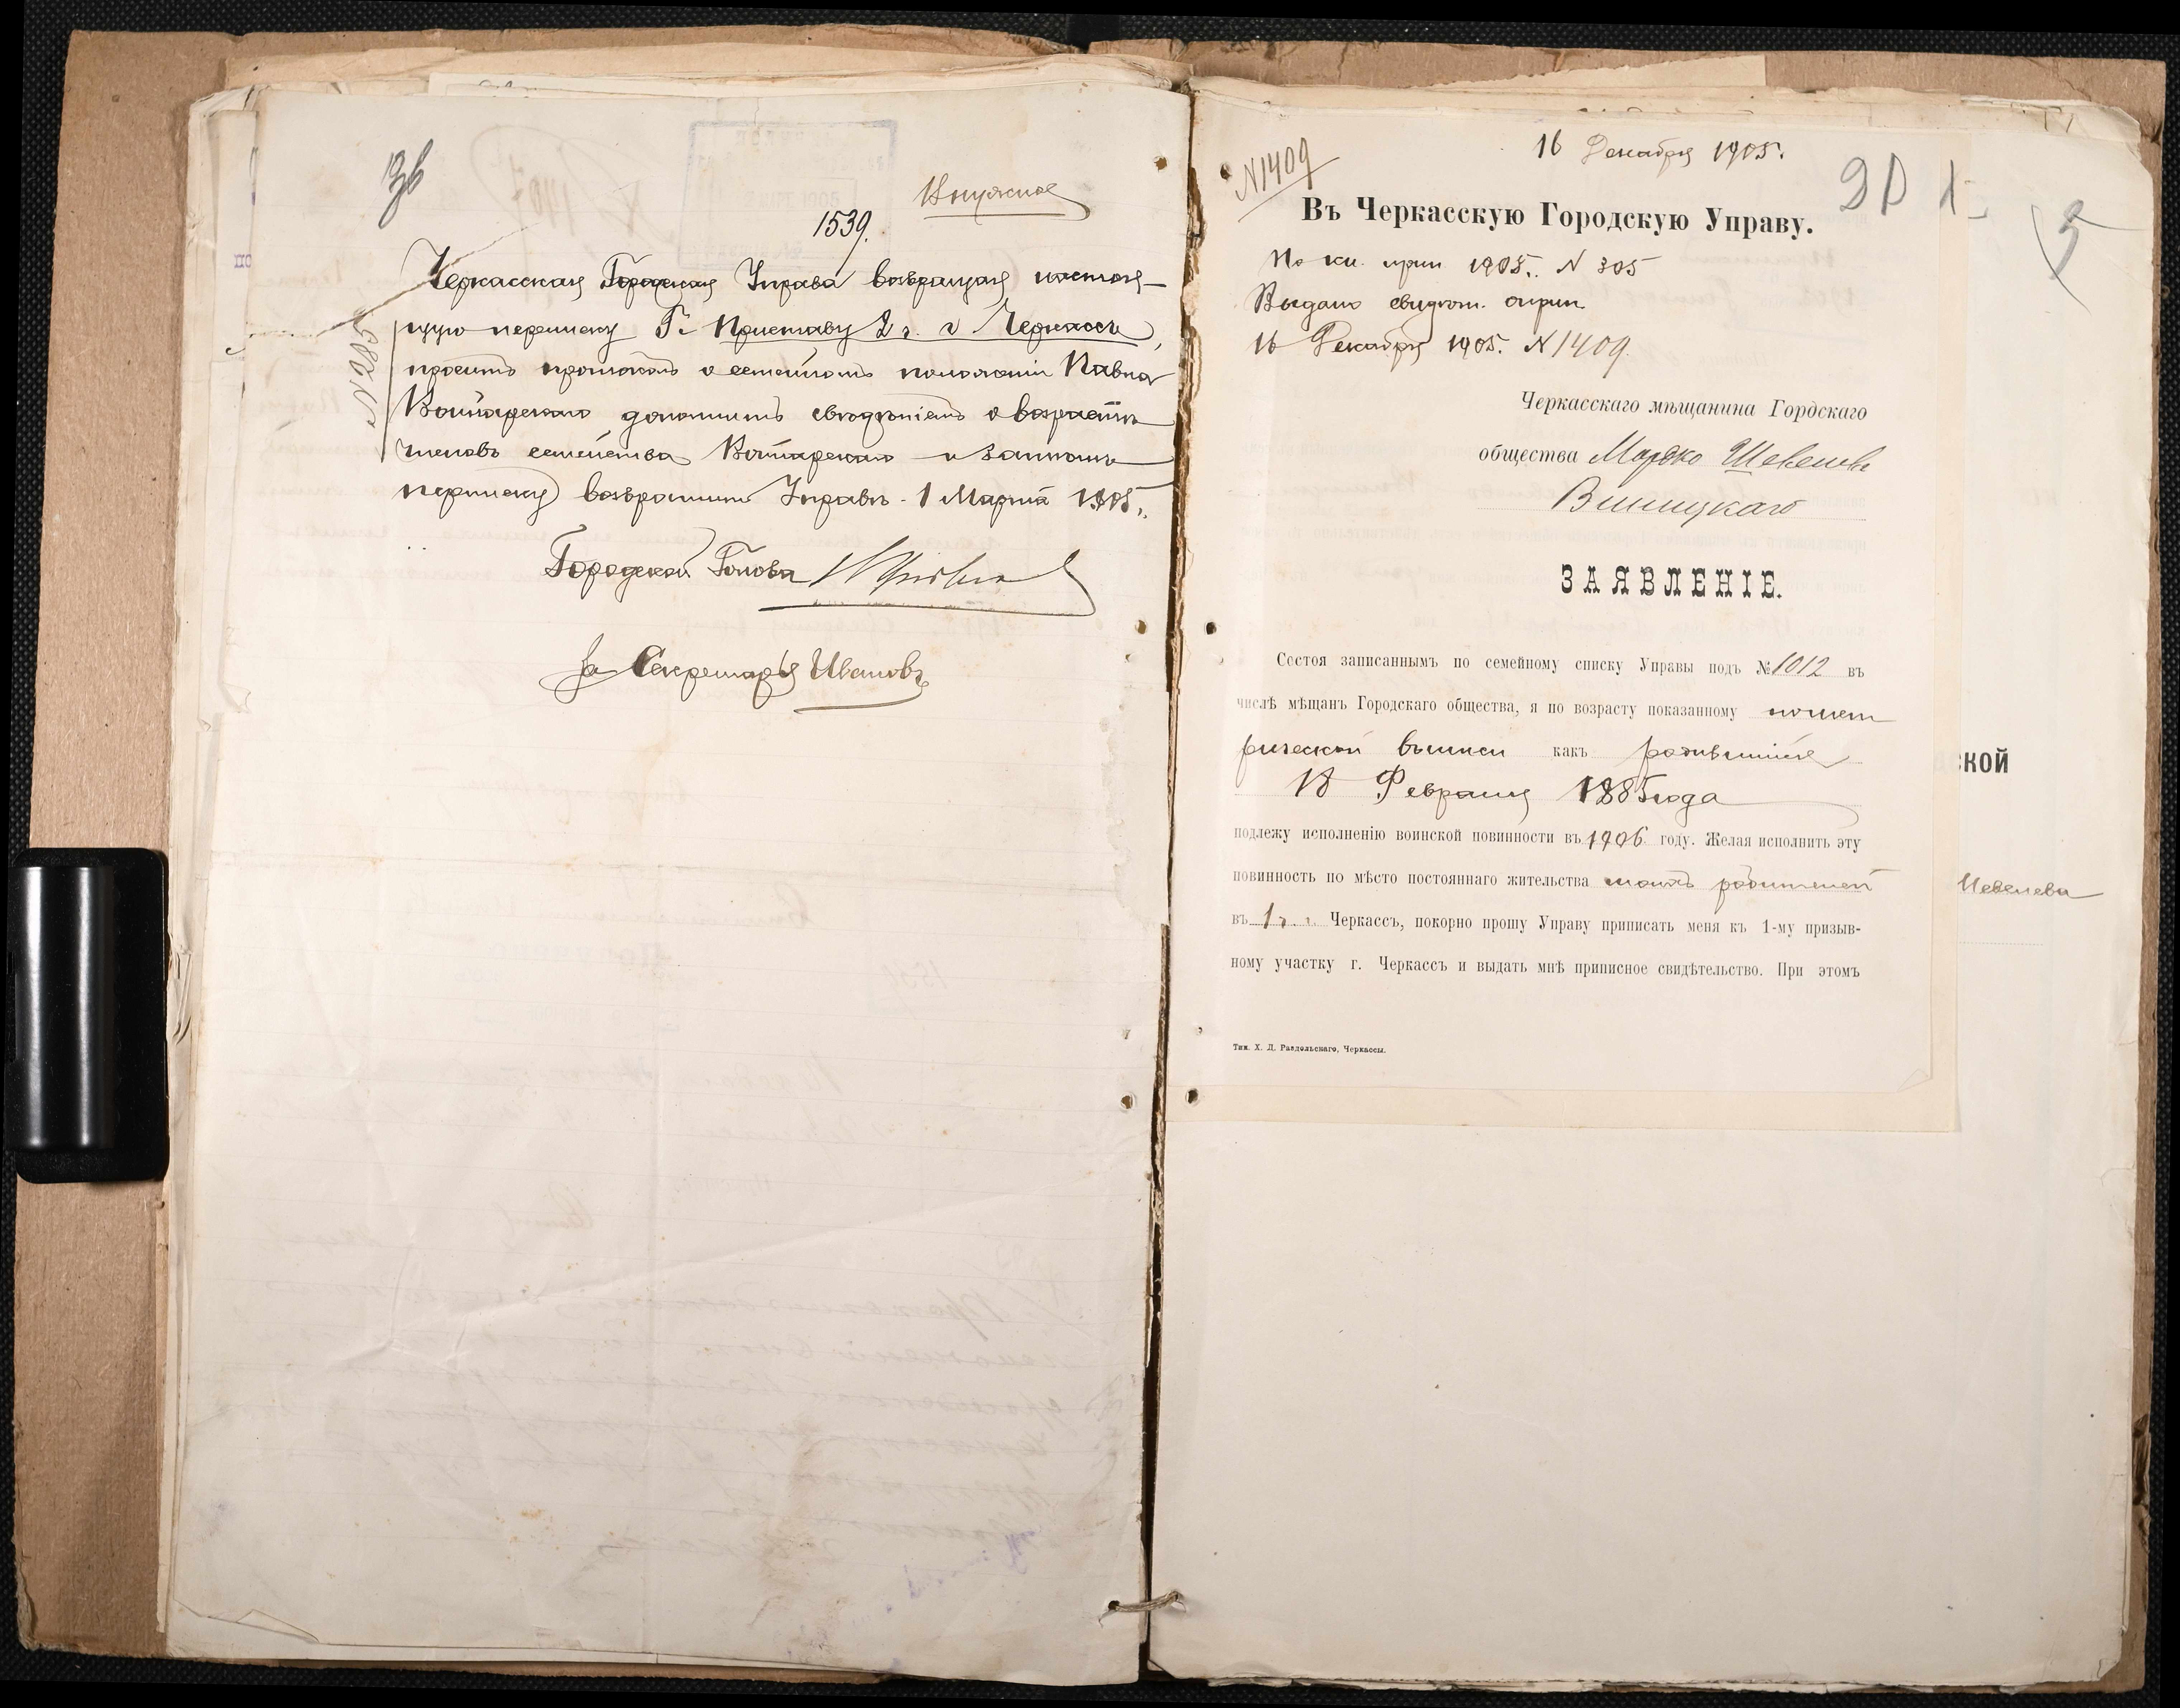 1539.
Черкасская Городская Управа возвращая настоя-
щую переписку Г. Приставу 2 ч. г Черкассъ,
проситъ протоколъ о семейномъ положеніи Павла
дополнить свѣдѣніемъ о возрастѣ
членовъ семейства и затѣмъ
переписку возвратить Управѣ. 1 Марта 1905 г.
Городской Голова
За Секретаря Ивановъ
16 Декабря 1905.
N 1409
Въ Черкасскую Городскую Управу.
По кн. прип. 1905 г. N 305
Выдано свидѣт. о прип.
16 Декабря 1905. N 1409.
5
Черкасскаго мѣщанина Гордскаго
общества Мордко Шевелевъ
Винницкаго
ЗАЯВЛЕНІЕ.
Состоя записаннымъ по семейному списку Управы подъ № 1012 въ
числѣ мѣщанъ Городскаго общества, я по возрасту показанному по мет
рической выписи какъ родившійся
18 Февраля 1885 года
подлежу исполненію воинской повинности въ 1906 году. Желая исполнить эту
повинность по мѣсто постояннаго жительства моихъ родителей
въ 1 ч. г. Черкассъ, покорно прошу Управу приписать меня къ 1-му призыв-
ному участку г. Черкассъ и выдать мнѣ приписное свидѣтельство. При этомъ
Тип. Х. Л. Раздольскаго, Черкассы.
ской
Шевелева